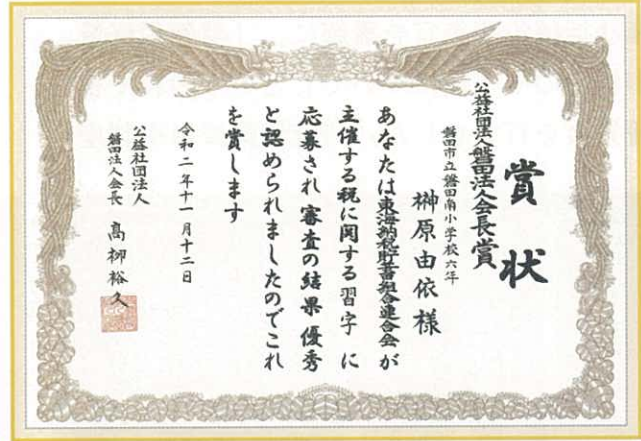 賞状
公益社団法人磐田法人会長賞
磐田市立磐田南小学校六年
榊原由依様
あなたは東海納税貯蓄組合連合会が
主催する税に関する習字に
応募され審査の結果優秀
と認められましたのでこれ
を賞します
令和二年十一月十二日
公益社団法人
磐田法人会長 髙栁裕久